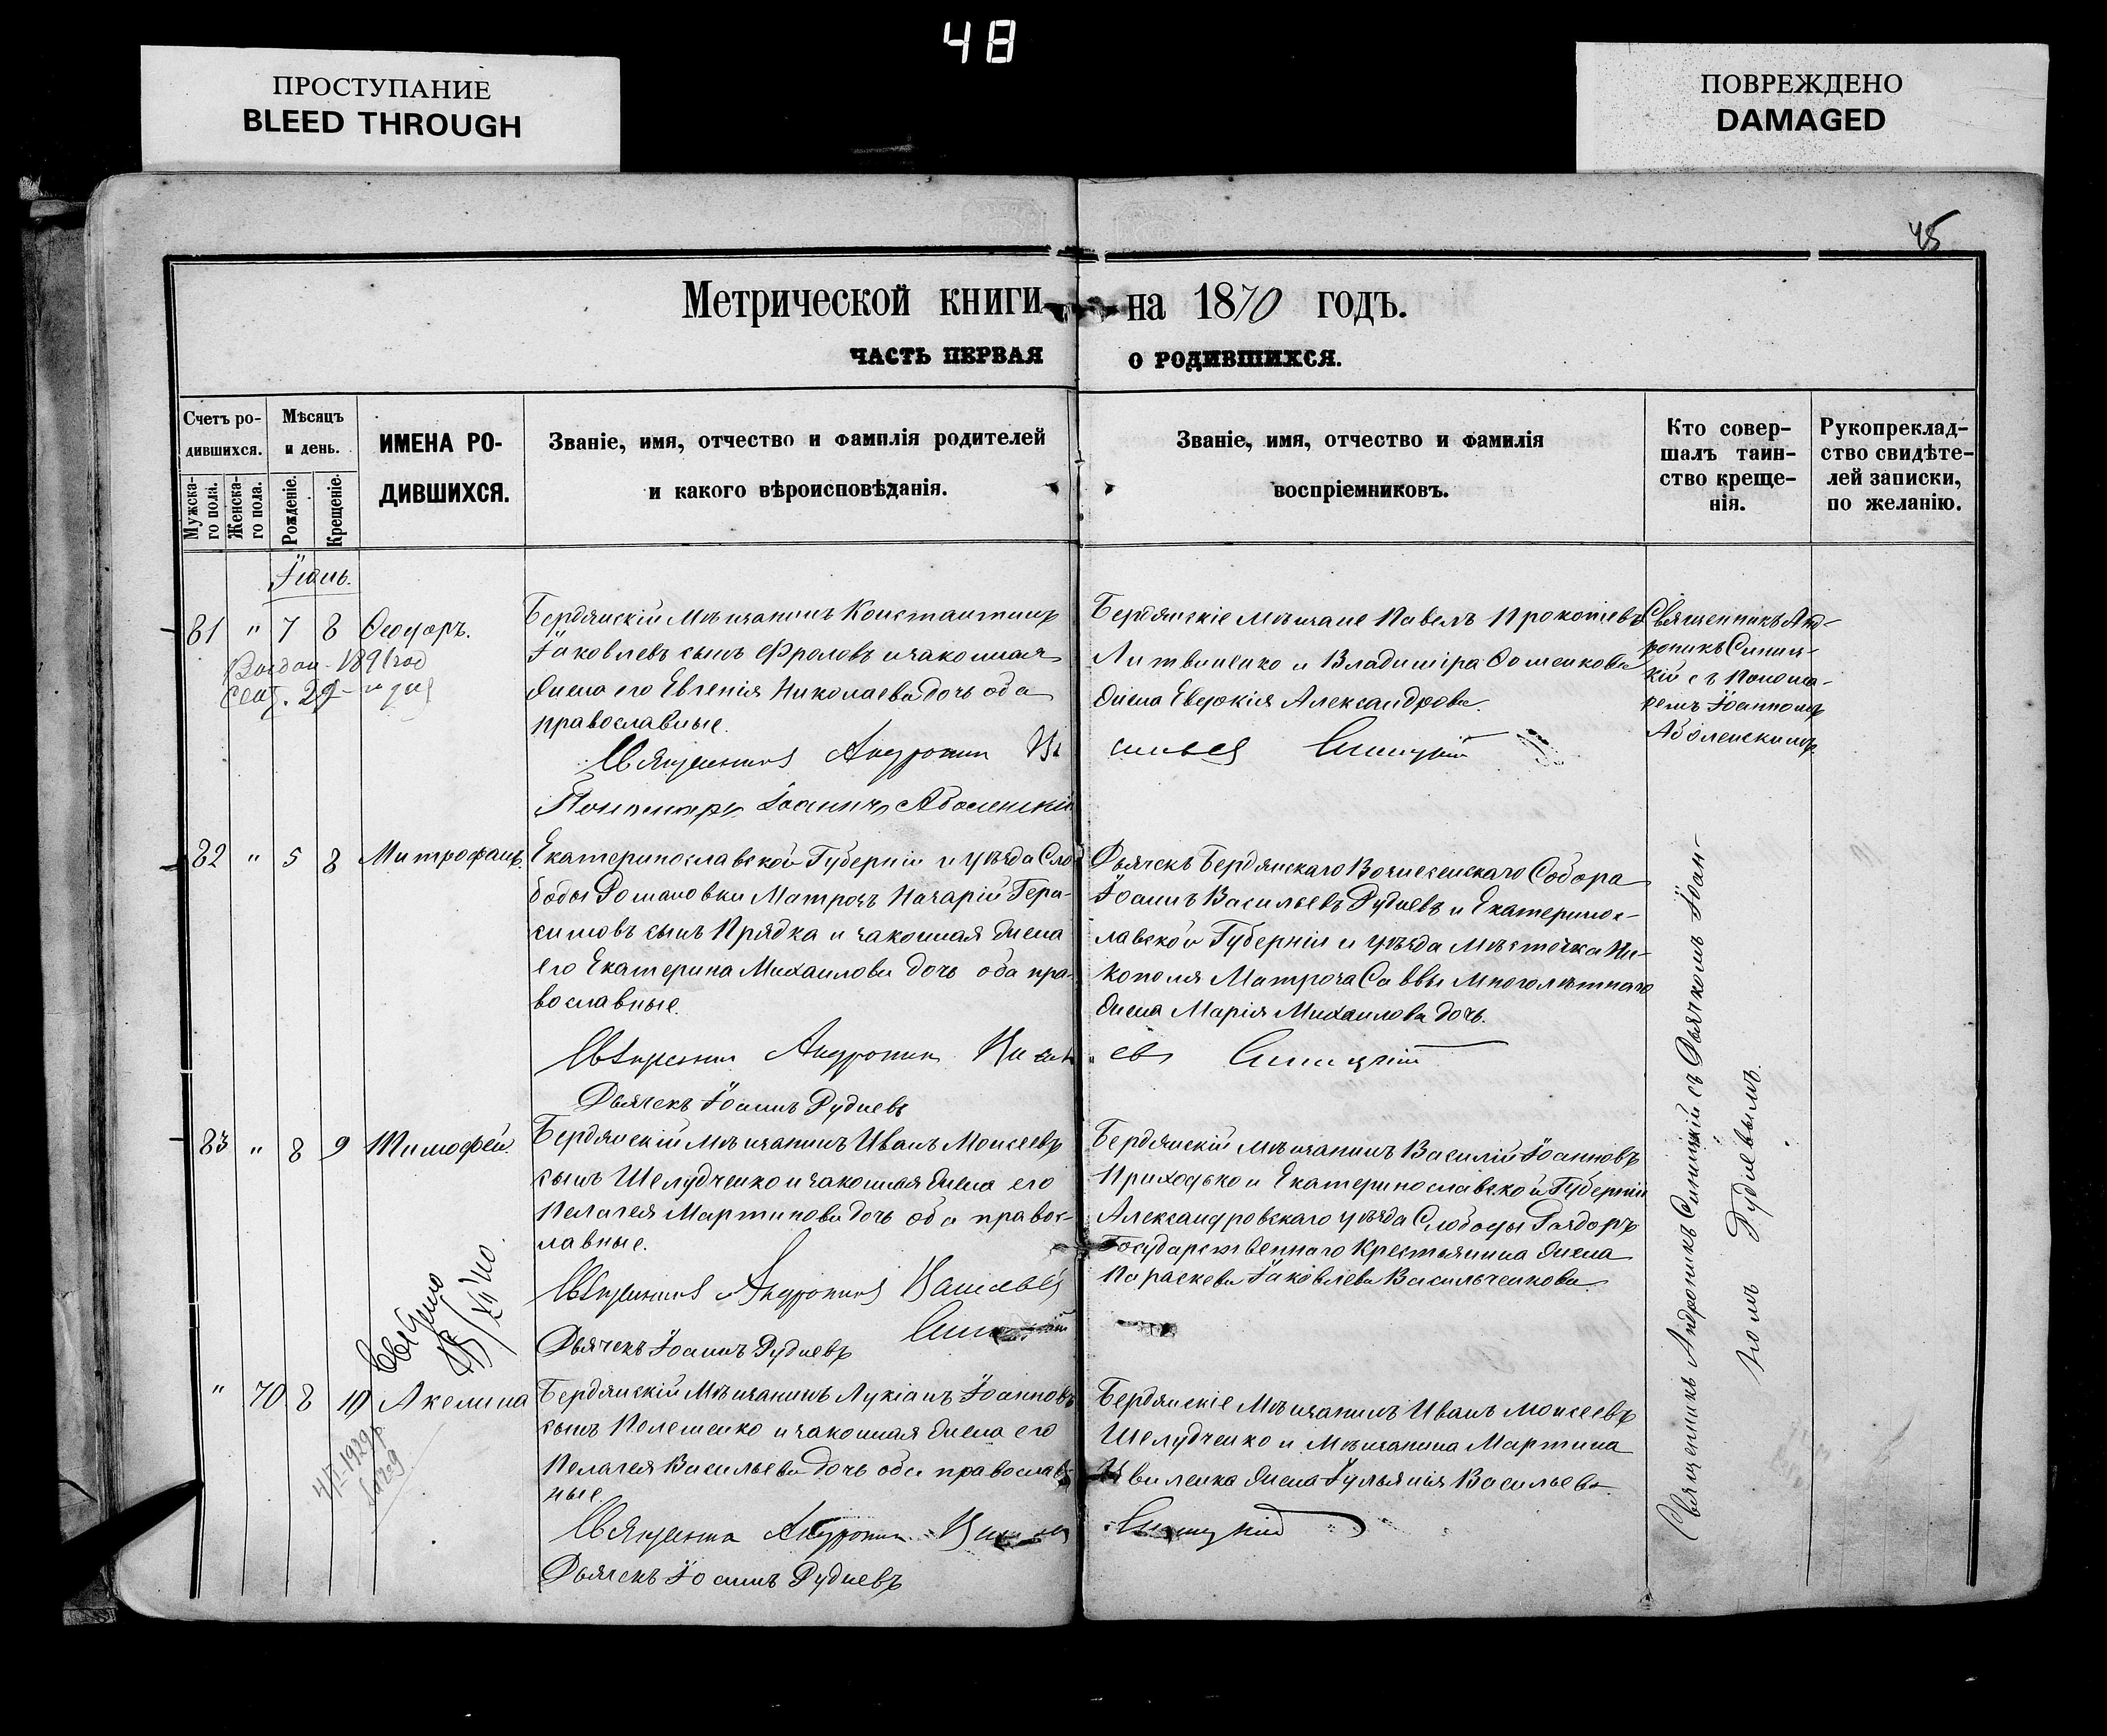 48
ПРОСТУПАНИЕ
BLEED THROUGH
ПОВРЕЖДЕНО
DAMAGED
45
Метрической книги на 1870 годъ.
ЧАСТЬ ПЕРВАЯ О РОДИВШИХСЯ.
Счетъ ро-
дившихся.
Мужска-
го пола.
Женска-
го пола.
Мѣсяцъ
и день.
Рожденіе.
Крещеніе.
ИМЕНА РО-
ДИВШИХСЯ.
Званіе, имя, отчество и фамилія родителей
и какого вѣроисповѣданія.
Званіе, имя, отчество и фамилія
воспріемниковъ.
Кто совер-
шалъ таин-
ство креще-
нія.
Рукопреклад-
ство свидѣте-
лей записки,
по желанію.
81 " 7 8 Ѳеодоръ.
1891 год
сент. 29
Бердянскій Мѣщанинъ Константинъ
Іаковлевъ сынъ Фроловъ и законная
жена его Евгенія Николаева дочь оба
православные.
Священникъ Андроникъ
Пономарь Іоаннъ Аболенскій
Бердянскіе мѣщане Павелъ Прокопіевъ
Литвиненко и Владиміра Ѳоменкова
жена Евдокія Александрова.
Синицкій
Священникъ Анд-
роникъ Синиц-
кій съ Понома-
ремъ Іоанномъ
Аболенскимъ
82 " 5 8 Митрофанъ.
Екатеринославской Губерніи и уѣзда Сло-
боды Романовки Матрозъ Назарій Гера-
симовъ сынъ Прядка и законная жена
его Екатерина Михаилова дочь оба пра-
вославные.
Священникъ Андроникъ
Синицкій
Дьячекъ Іоаннъ Рудневъ
Дьячекъ Бердянскаго Вознесенскаго Собора
Іоаннъ Васильевъ Рудневъ и Екатеринос-
лавской Губерніи и уѣзда Мѣстечка Ни-
кополя Матроза Саввы Многолѣтняго
жена Марія Михаилова дочь.
83 " 8 9 Тимофей.
Бердянскій мѣщанинъ Иванъ Моисеевъ
сынъ Шелудченко и законная жена его
Пелагея Мартинова дочь оба правос-
лавные.
Священникъ Андроникъ Васильевъ
Синицкій
Дьячекъ Іоаннъ Рудневъ
Бердянскій мѣщанинъ Василій Іоанновъ
Приходько и Екатеринославской Губерніи
Александровскаго уѣзда Слободы
Государственнаго Крестьянина жена
Параскева Іаковлева Васильченкова.
" 70 8 10 Акелина
4/I-1929 р.
Бердянскій Мѣщанинъ Лукіанъ Іоанновъ
сынъ Пелешенко и законная жена его
Пелагея Васильева дочь оба православ-
ные.
Священникъ Андроникъ
Синицкій
Дьячекъ Іоаннъ Рудневъ
Бердянскіе Мѣщанинъ Иванъ Моисеевъ
Шелудченко и Мѣщанина Мартина
жена Іульянія Васильева
Священникъ Андроникъ Синицкій съ Дьячкомъ Іоан-
номъ Рудневымъ.